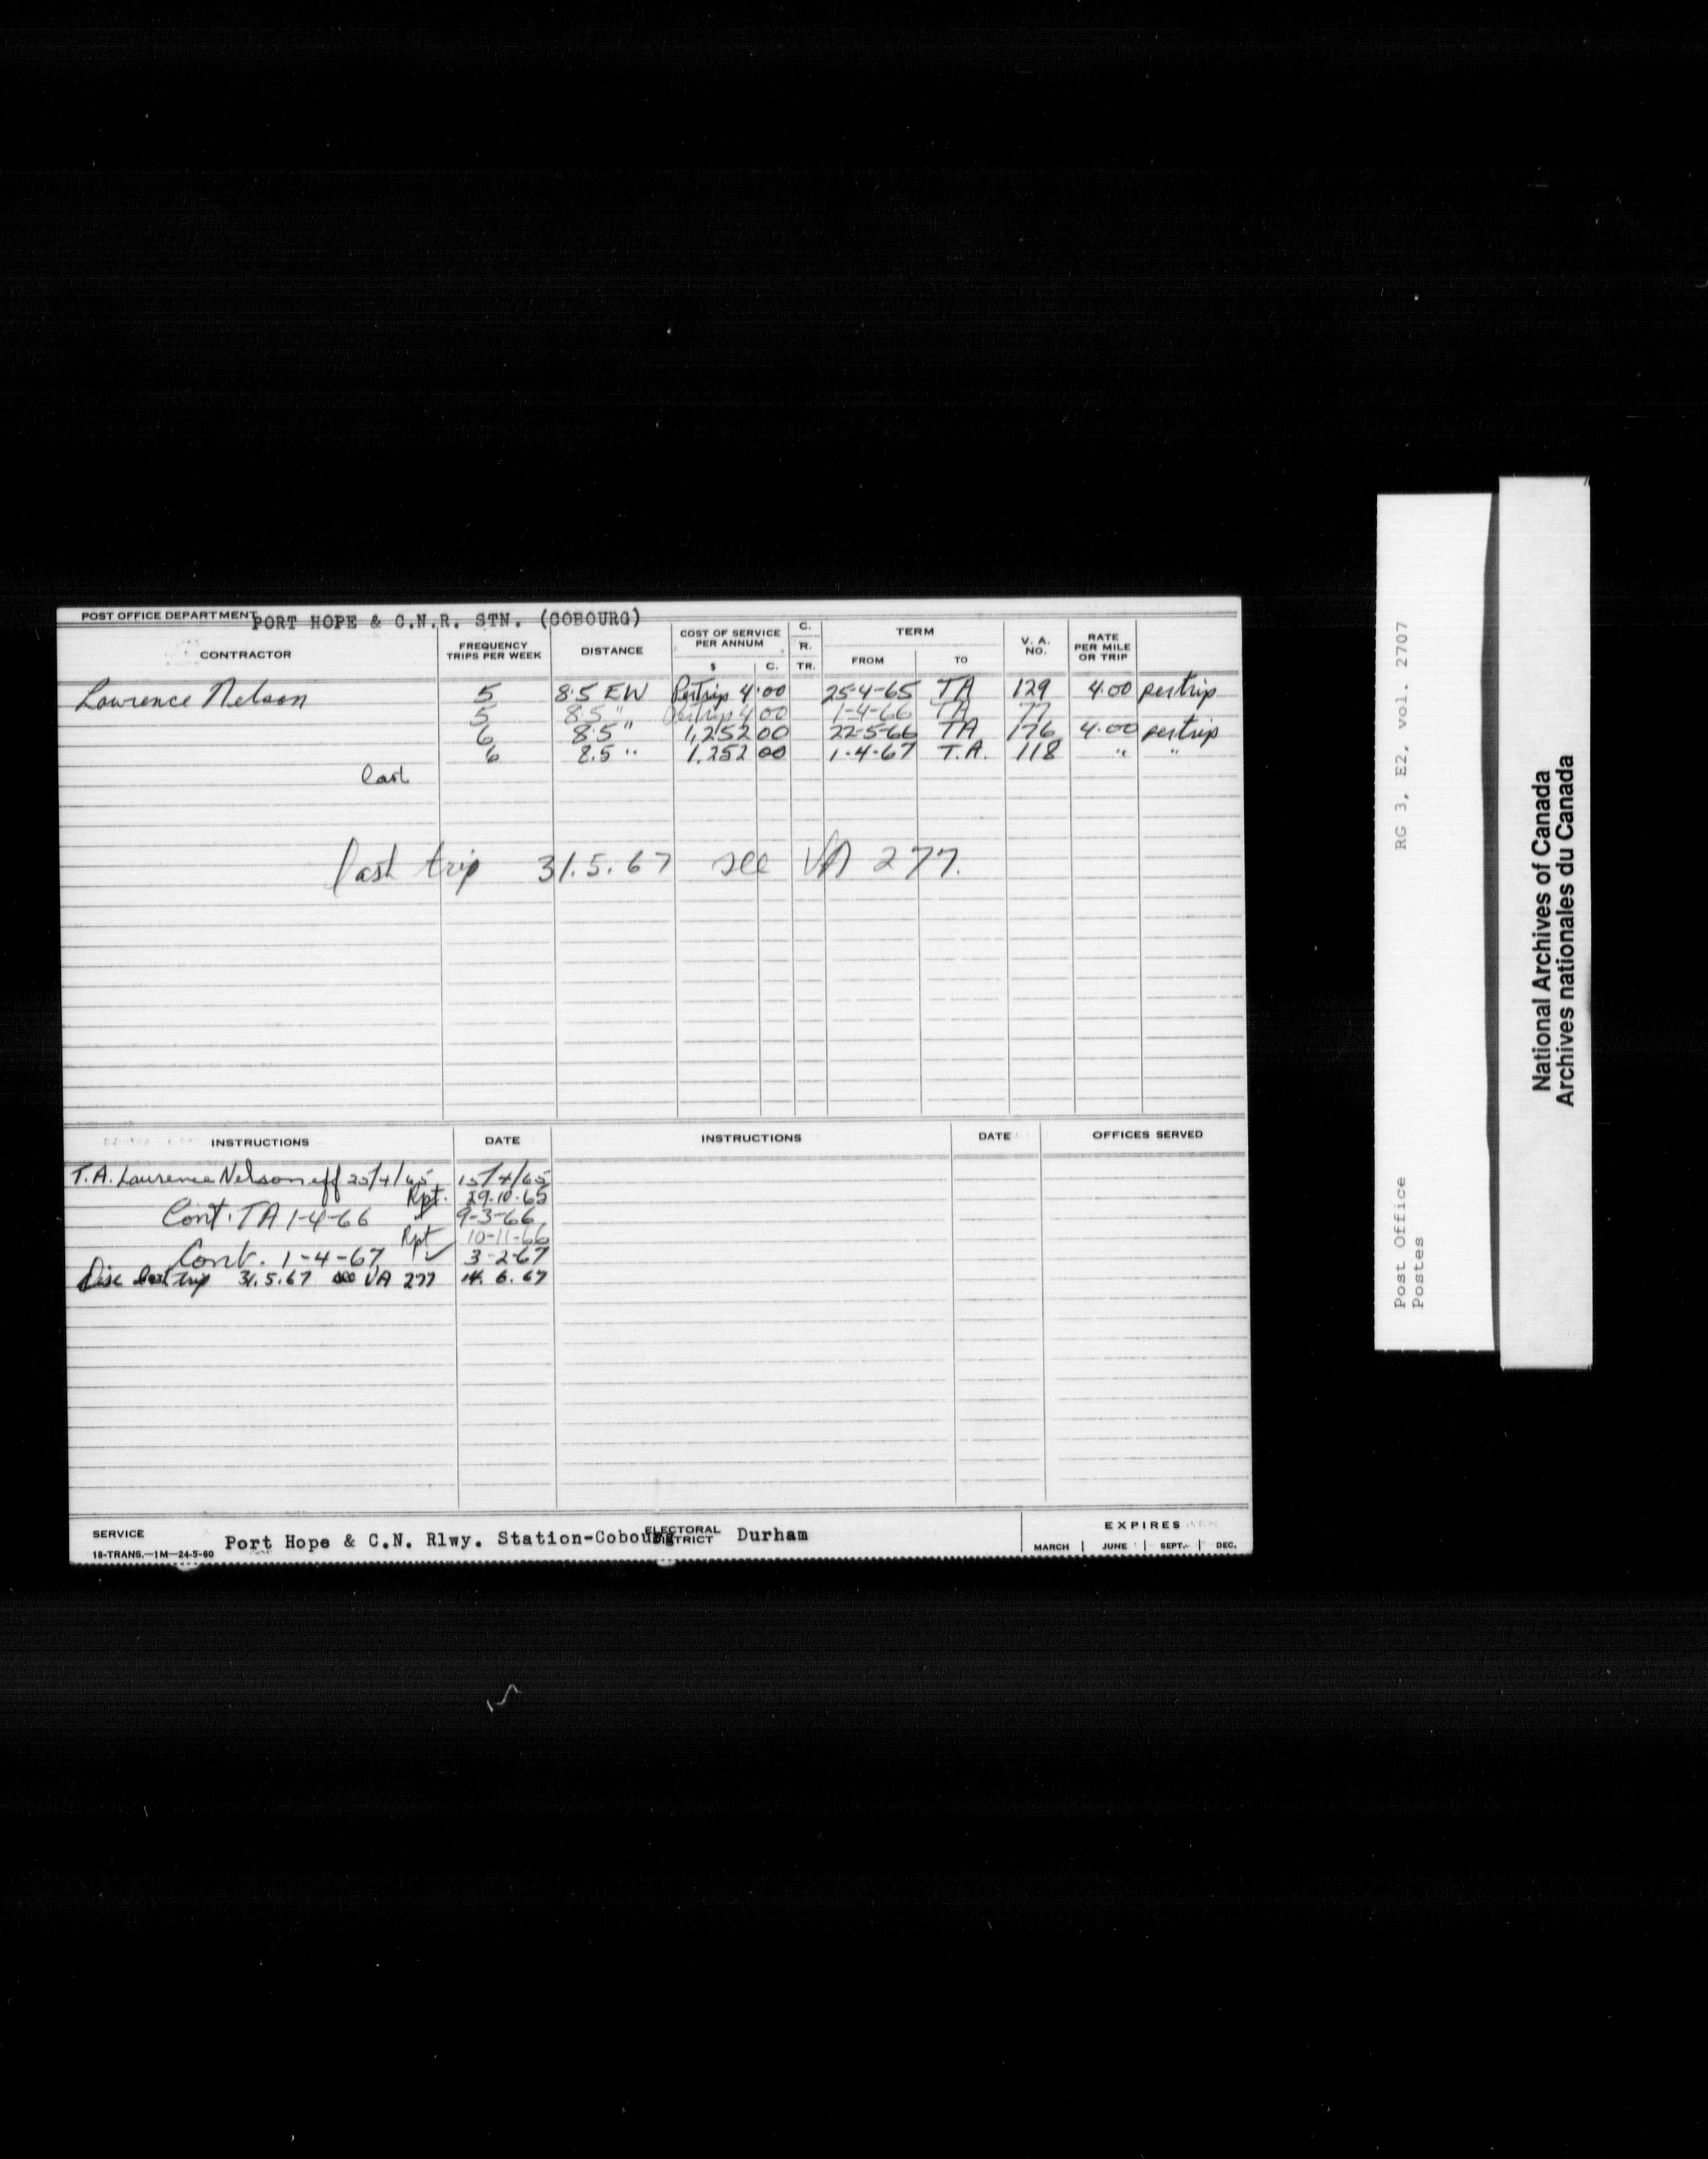 POST OFFICE DEPARTMENT PORT HOPE & C.N.R. STN. (COBOURG)
CONTRACTOR FREQUENCY TRIPS PER WEEK DISTANCE COST OF SERVICE PER ANNUM $ C. C. R. TR. TERM FROM TO V. A. NO. RATE PER MILE OR TRIP
Lawrence Nelson 5 8.5 EW Per trip 4.00 25-4-65 TA 129 4.00 per trip
5 8.5 " Per trip 4 00 1-4-66 TA 77
6 8.5 " 1,252 00 22-5-66 TA 176 4.00 per trip
6 8.5 " 1,252 00 1-4-67 T.A. 118 " "
last
last trip 31.5.67 see VA 277.
INSTRUCTIONS DATE INSTRUCTIONS DATE OFFICES SERVED
T.A. Lawrence Nelson eff 25/4/65 15/4/65
Rpt. 29-10-65
Cont. TA 1-4-66 9-3-66
Rpt 10-11-66
Cont. 1-4-67 ✓ 3-2-67
Disc last trip 31.5.67 see VA 277 14.6.67
SERVICE Port Hope & C.N. Rlwy. Station-Cobourg ELECTORAL DISTRICT Durham EXPIRES
18-TRANS.—1M—24-5-60 MARCH JUNE SEPT. DEC.
Post Office RG 3, E2, vol. 2707
Postes
National Archives of Canada
Archives nationales du Canada